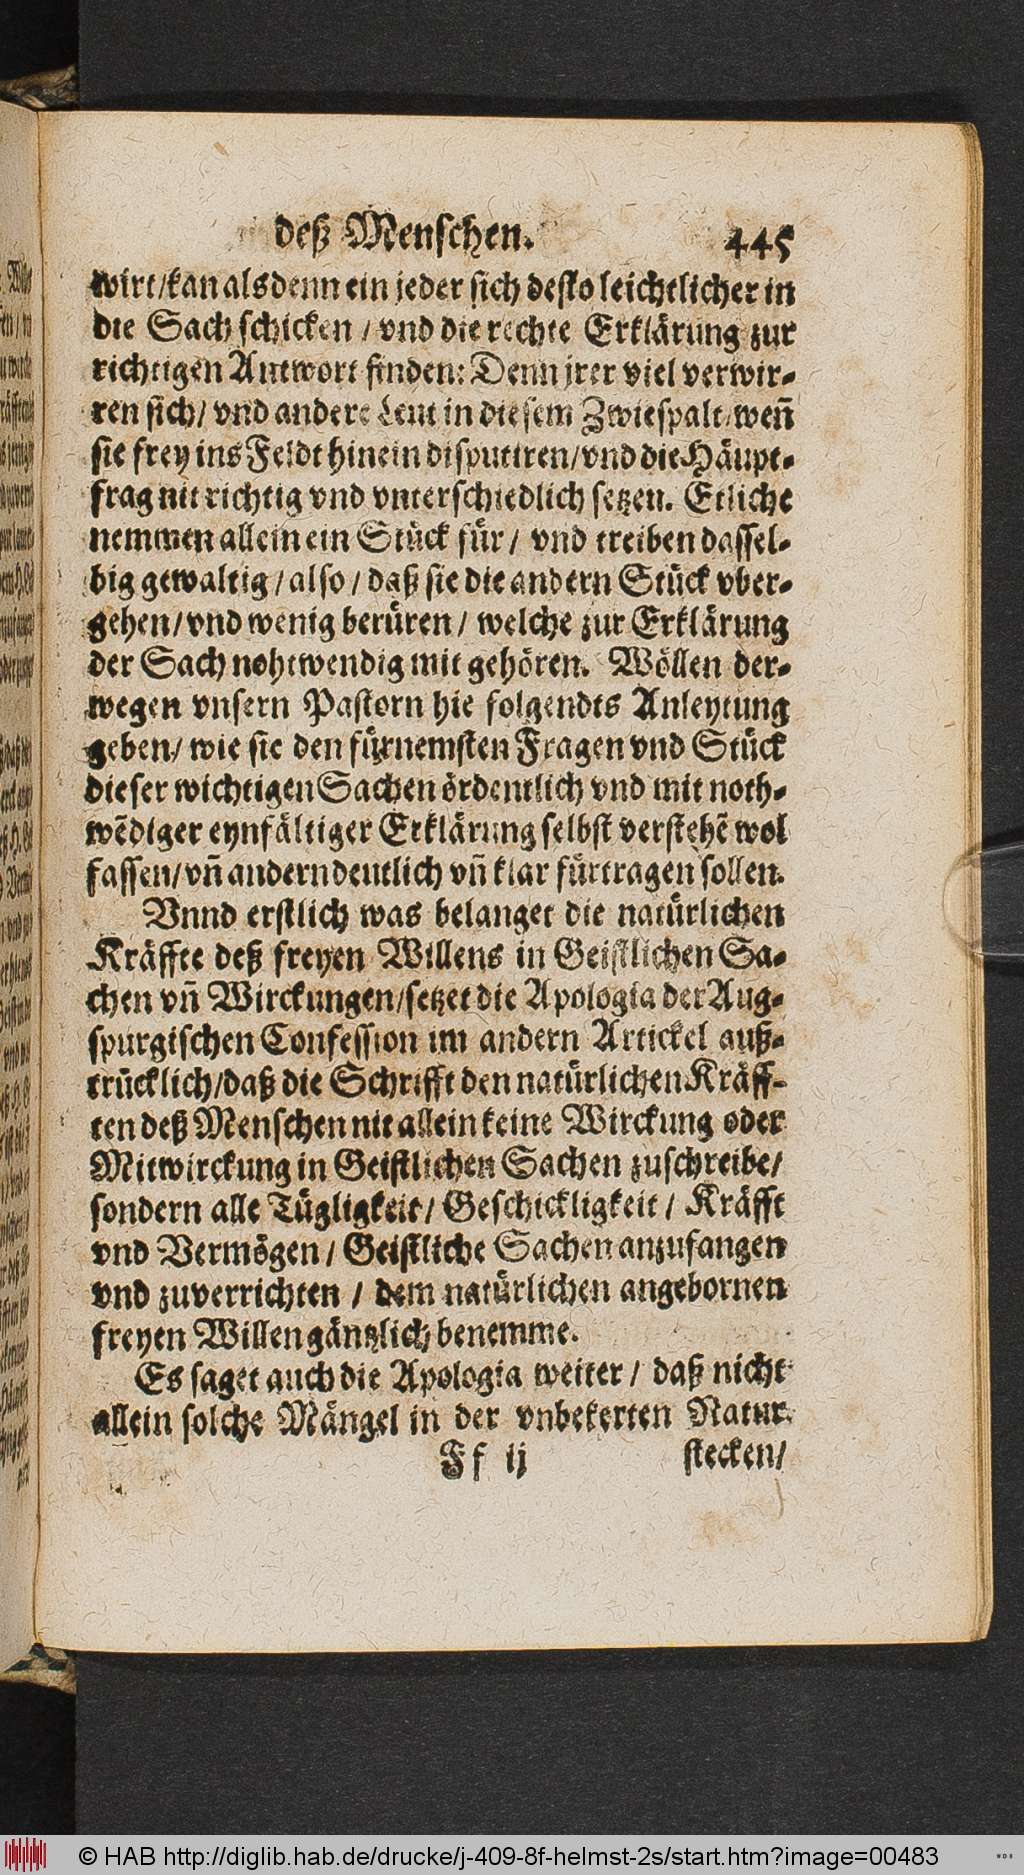 deß Menschen. 445
wirt/kan alsdenn ein jeder sich desto leichtlicher in
die Sach schicken / vnd die rechte Erklärung zur
richtigen Antwort finden: Denn jrer viel verwir-
ren sich/ vnd andere Leut in diesem Zwiespalt/ weñ
sie frey ins Feldt hinein disputiren/vnd die Häupt-
frag nit richtig vnd vnterschiedlich setzen. Etliche
nemmen allein ein Stück für / vnd treiben dassel-
big gewaltig / also / daß sie die andern Stück vber-
gehen/vnd wenig berüren / welche zur Erklärung
der Sach nohtwendig mit gehören. Wöllen der-
wegen vnsern Pastorn hie folgendts Anleytung
geben/ wie sie den fürnemsten Fragen vnd Stück
dieser wichtigen Sachen ördentlich vnd mit noth-
wẽdiger eynfältiger Erklärung selbst verstehẽ wol
fassen/vñ andern deutlich vñ klar fürtragen sollen.
Vnnd erstlich was belanget die natürlichen
Kräffte deß freyen Willens in Geistlichen Sa-
chen vñ Wirckungen/setzet die Apologia der Aug-
spurgischen Confession im andern Artickel auß-
trücklich/daß die Schrifft den natürlichen Kräff-
ten deß Menschen nit allein keine Wirckung oder
Mitwirckung in Geistlichen Sachen zuschreibe/
sondern alle Tügligkeit/ Geschickligkeit / Kräfft
vnd Vermögen / Geistliche Sachen anzufangen
vnd zuverrichten / dem natürlichen angebornen
freyen Willen gäntzlich benemme.
Es saget auch die Apologia weiter / daß nicht
allein solche Mängel in der vnbekerten Natur
Ff ij stecken/
© HAB http://diglib.hab.de/drucke/j-409-8f-helmst-2s/start.htm?image=00483